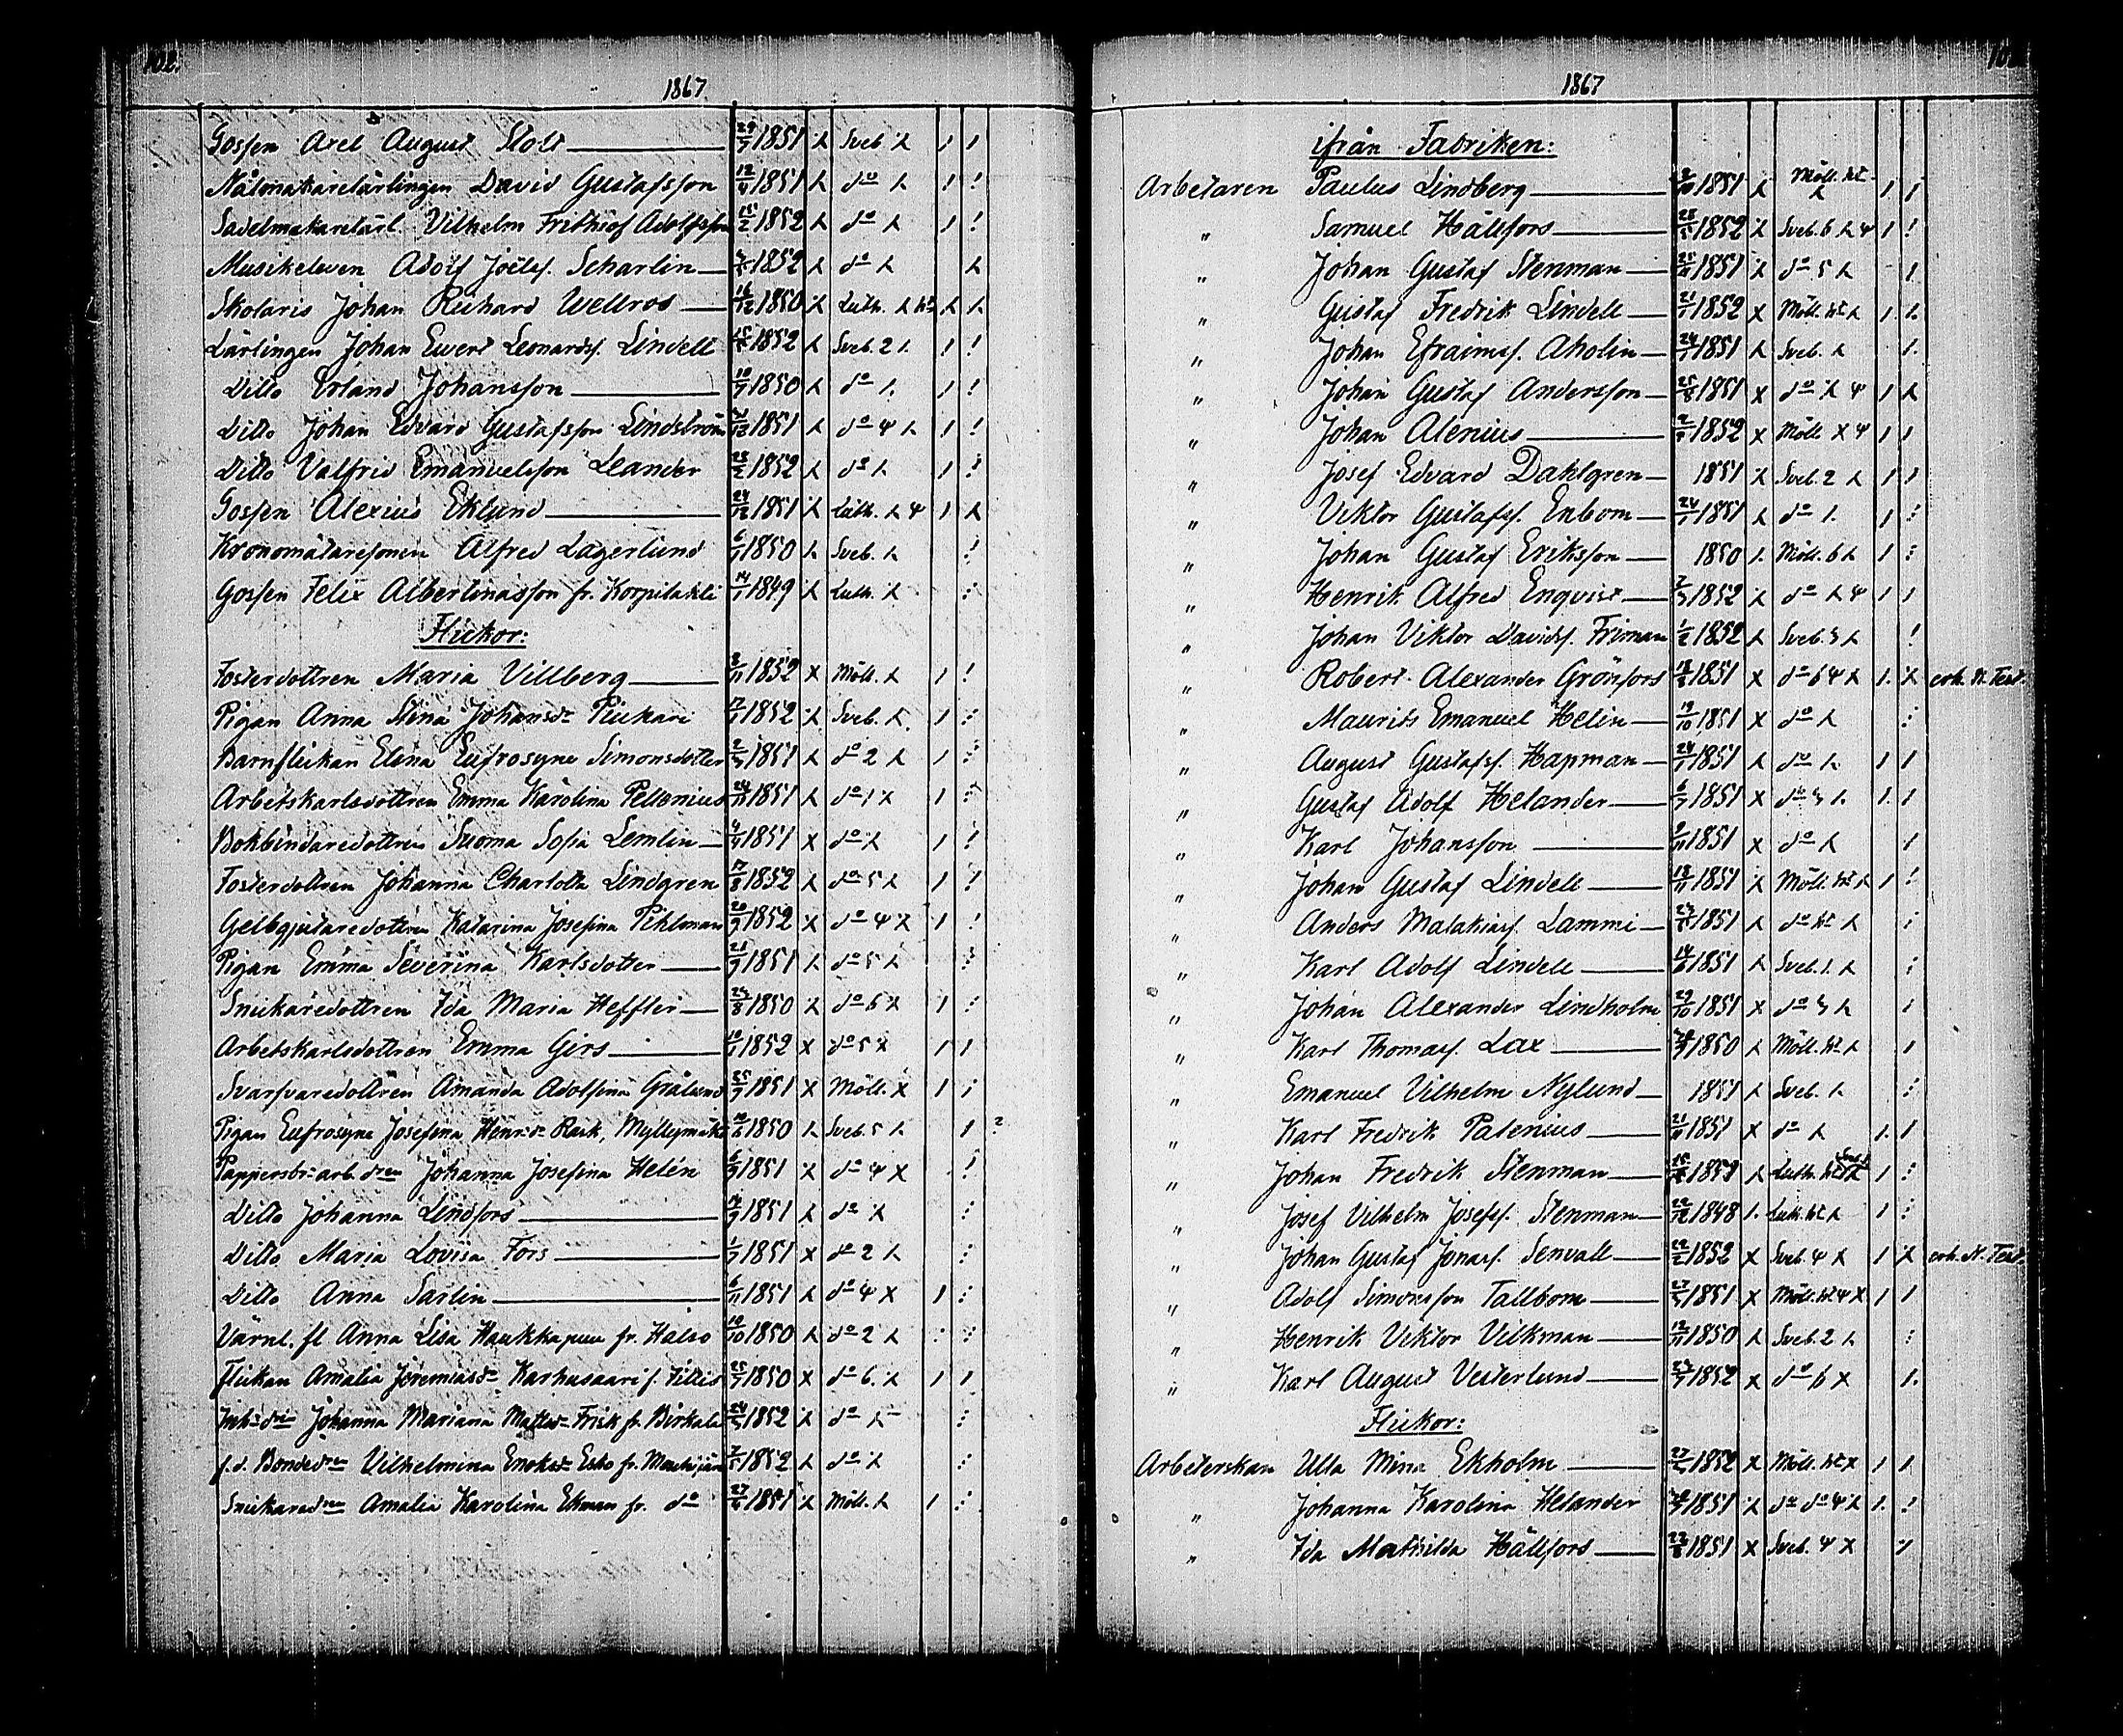 102.
1867
Gossen Axel August Stolt 29/7 1851 Sveb.
Nålmakarelärlingen David Gustafsson 12/4 1851 do
Sadelmakarelärl. Vilhelm Frithiof Adolfsson 15/2 1852 do
Musikeleven Adolf Joëlss. Scharlin 1852 do
Skolaris Johan Richard Wellros 16/12 1850 Luth.
Lärlingen Johan Evert Leonardss. Lindell 1852 Sveb. 2
Ditto Erland Johansson 10/7 1850 do
Ditto Johan Edvard Gustafsson Lindström 1851 do 4
Ditto Valfrid Emanuelsson Leander 1852 do
Gossen Alexius Eklund 24/12 1851 Luth. 4
Kronomätaresonen Alfred Lagerlund 6/1 1850 Sveb.
Gossen Felix Albertinasson fr. Korpilahti 14/1 1849 Luth.
Flickor:
Fosterdottren Maria Villberg 1852 Möll.
Pigan Anna Stina Johansdr Piukari 1852 Sveb.
Barnflickan Elena Eufrosyne Simonsdotter 1851 do 2
Arbetskarlsdottren Emma Karolina Pellenius 1851 do 1
Bokbindaredottren Suoma Sofia Lemlin 1851 do
Fosterdottren Johanna Charlotta Lindgren 17/8 1852 do 5
Gelbgjutaredottren Katarina Josefina Pihlman 1852 do 4
Pigan Emma Severina Karlsdotter 1851 do 5
Snickaredottren Ida Maria Heffler 1850 do 6
Arbetskarlsdottren Emma Girs 1852 do 5
Svarfvaredottren Amanda Adolfina Grålund 1851 Möll.
Pigan Eufrosyne Josefina Henrdr Rask, Myllymäki 1850 Sveb. 5 ?
Pappersbr-arb. dren Johanna Josefina Helén 1851 do 4
Ditto Johanna Lindfors 1851 do
Ditto Maria Lovisa Fors 1851 do 2
Ditto Anna Sarlin 6/11 1851 do 4
Värnl. fl Anna Lisa Haukkapuu fr. Halso 10/10 1850 do 2
Flickan Amalia Jeremiasdr Karhusaari f. Killis 1850 do 6.
Inh-dren Johanna Mariana Mattsdr Frisk fr. Birkala 1852 do
f.d. Bondedren Vilhelmina Enoksdr Esko fr. 1852 do
Snickaredren Amalia Karolina Ekman fr. do 1851 Möll.
1867
ifrån Fabriken:
Arbetaren Paulus Lindberg 1851 Möll. ht
" Samuel Hällfors 1852 Sveb. 6 4
" Johan Gustaf Stenman 1851 do 5
" Gustaf Fredrik Lindell 21/1 1852 Möll. ht
" Johan Efraimss. Aholin 1851 Sveb.
" Johan Gustaf Andersson 1851 do 4
" Johan Alenius 1852 Möll. 4
" Josef Edvard Dahlgren 1851 Sveb. 2
" Viktor Gustafss. Enbom 24/1 1851 do
" Johan Gustaf Eriksson 1850 Möll. 6
" Henrik Alfred Enqvist 1852 do 4
" Johan Viktor Davidss. Friman 1/2 1852 Sveb. 3
" Robert Alexander Grönfors 1851 do 6 4 erh. N. Test.
" Maurits Emanuel Helin 19/10 1851 do
" August Gustafss. Hapman 1851 do
" Gustaf Adolf Helander 1851 do 3
" Karl Johansson 1851 do
" Johan Gustaf Lindell 18/11 1851 Möll. ht
" Anders Malakiass. Lammi 1851 do ht
" Karl Adolf Lindell 1851 Sveb.
" Johan Alexander Lindholm 29/10 1851 do 3
" Karl Thomass. Lax 1850 Möll. ht
" Emanuel Vilhelm Nylund 1851 Sveb.
" Karl Fredrik Palenius 1851 do
" Johan Fredrik Stenman Luth. ht
" Josef Vilhelm Josefss. Stenman 1848 Luth. ht
" Johan Gustaf Jonass. Senvall 1852 Sveb. 4 erh. N. Test.
" Adolf Simonsson Tallbom 1851 Möll. ht 4
" Henrik Viktor Vilkman 12/11 1850 Sveb. 2
" Karl August Vesterlund 1852 do 6
Flickor:
Arbeterskan Ulla Mina Ekholm 1852 Möll. ht
" Johanna Karolina Helander 1851 do do 4
" Ida Mathilda Hällfors 23/8 1851 Sveb. 4